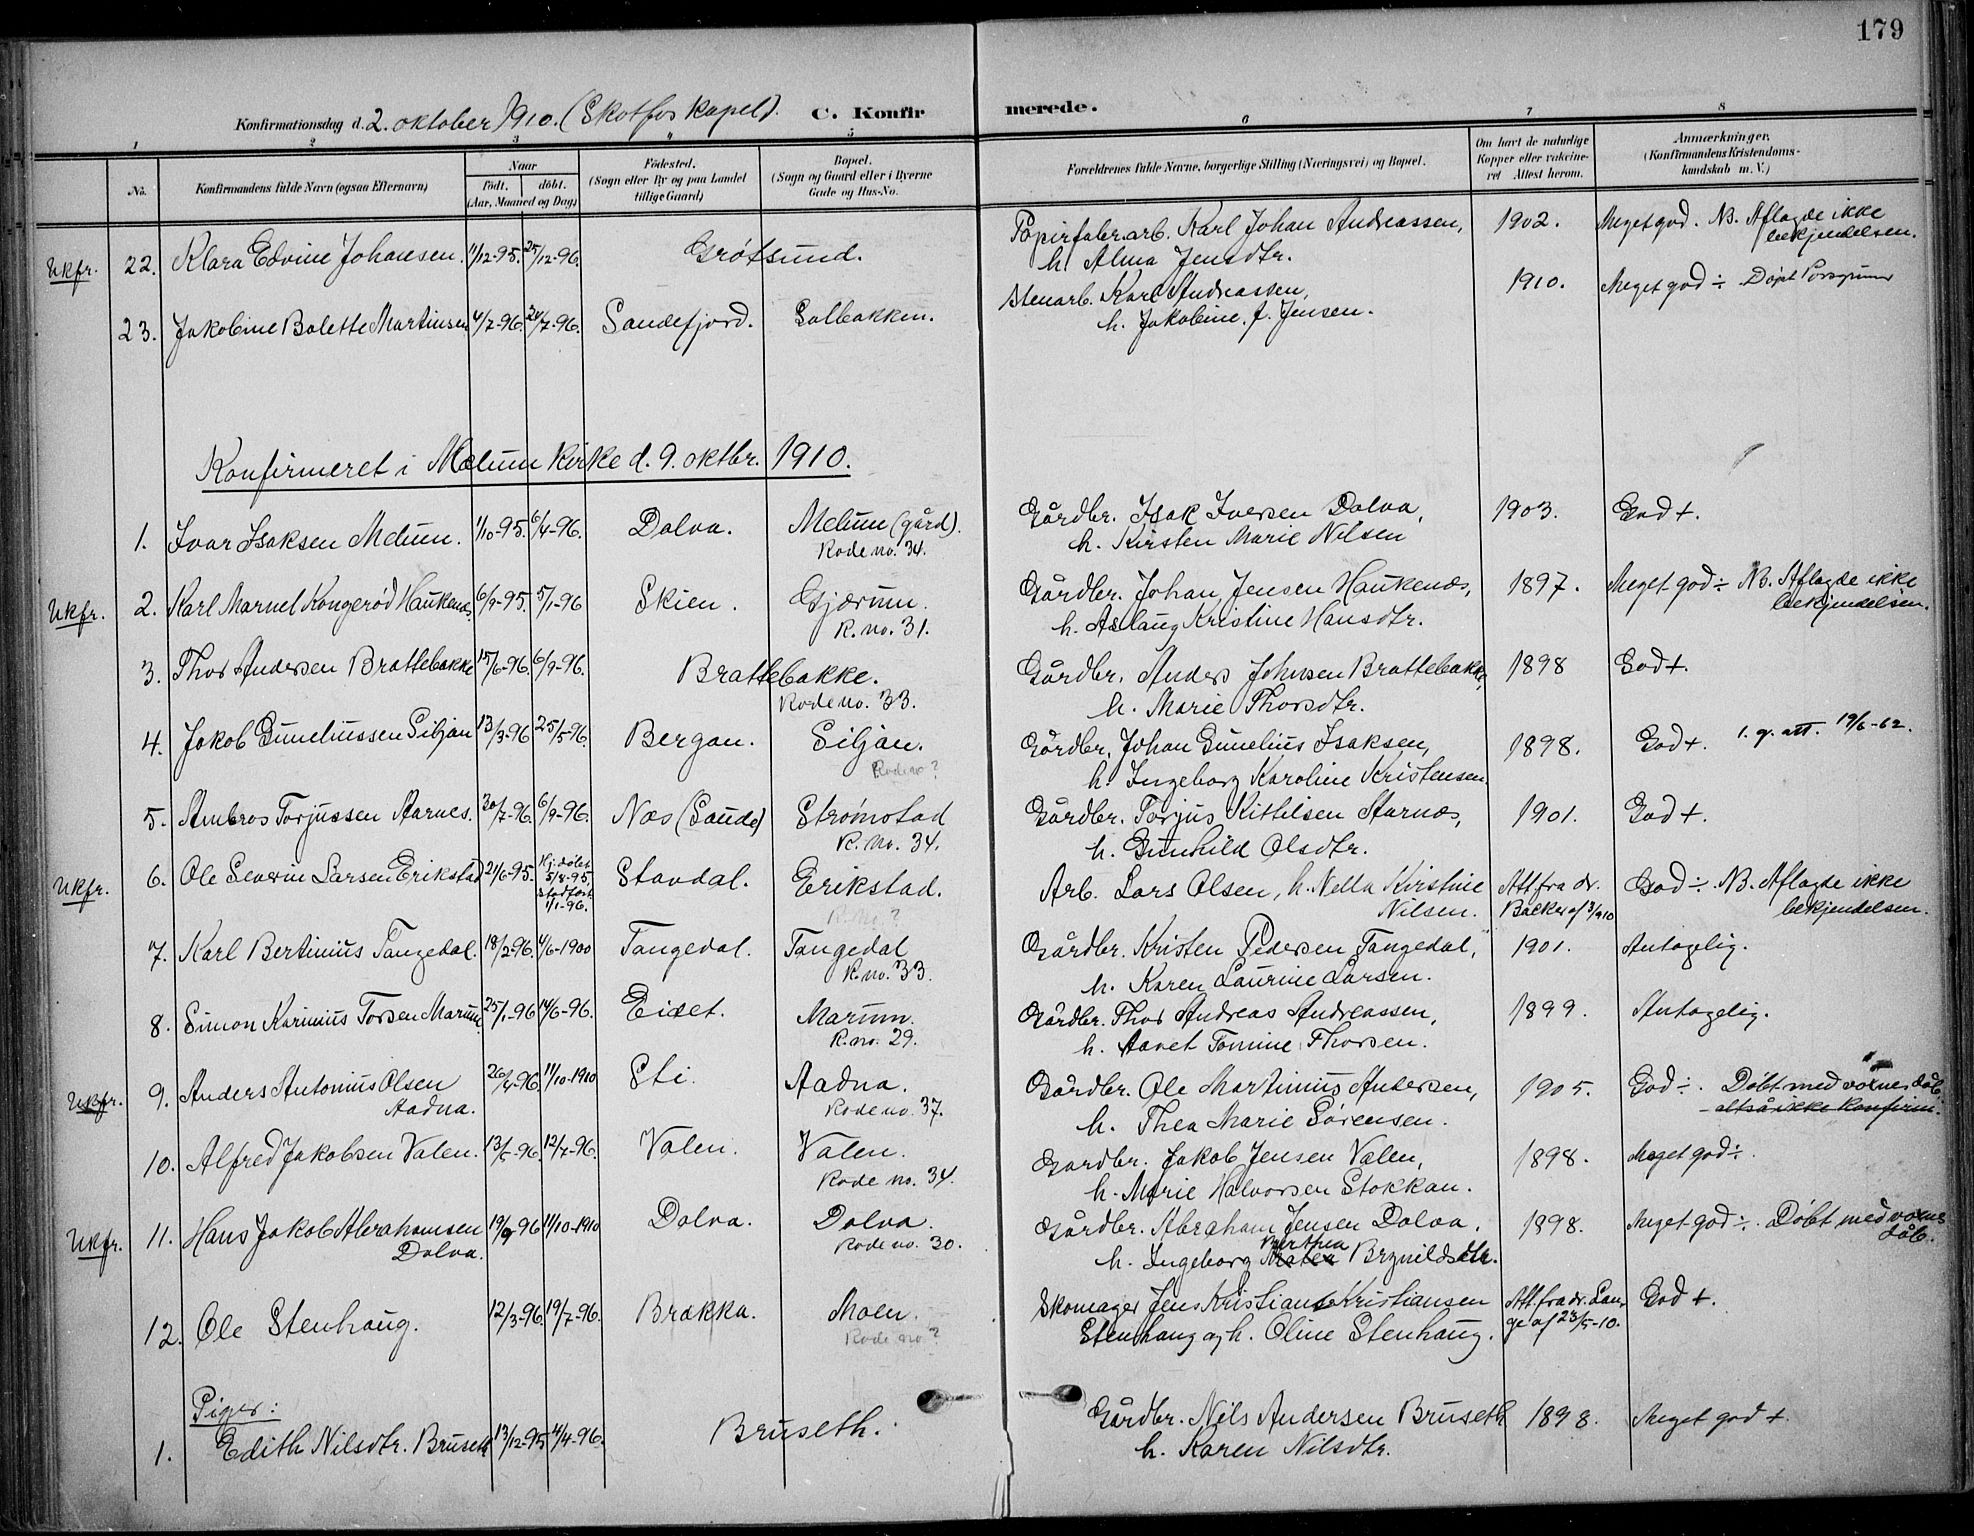 179
Konfirmationsdag d. 2. oktober 1910. (Skotfos kapel). C. Konfirmerede.
1 2 3 4 5 6 7 8
No. Konfirmandens fulde Navn (ogsaa Efternavn) Naar født. døbt. (Aar, Maaned og Dag) Fødested. (Sogn eller By og paa Landet tillige Gaard) Bopæl. (Sogn og Gaard eller i Byerne Gade og Hus-No. Forældrenes fulde Navne, borgerlige Stilling (Næringsvei) og Bopæl. Om havt de naturlige Kopper eller vakcineret Attest herom. Anmærkninger. (Konfirmandens Kristendomskundskab m. V.)
Ukfr. 22. Klara Edvine Johansen. 11/12-95. 25/12-96. Grøtsund. Papirfabr.arb. Karl Johan Andreassen, 1902. Meget god. NB. Aflagde ikke
h. Alma Jensdtr. bekjendelsen.
23. Jakobine Bolette Martinsen 4/7-96. 20/7-96. Sandefjord. Solbakken. Stenarb. Karl Andreassen, 1910. Meget god ÷ Døpt Porsgrunn
h. Jakobine, f. Jensen.
Konfirmeret i Mælum kirke d. 9. oktbr. 1910.
1. Ivar Isaksen Melum. 1/10-95. 6/4-96. Dolva. Melum (gård). Gårdbr. Isak Iversen Dolva, 1903. God +.
Rode no. 34. h. Kirsten Marie Nilsen
Ukfr. 2. Karl Marnel Kongerød Haukenæs. 6/9-95. 5/1-96 Skien. Gjærum. Gårdbr. Johan Jensen Haukenæs, 1897. Meget god ÷ NB. Aflagde ikke
R. no. 31. h. Aslaug Kristine Hansdtr. bekjendelsen.
3. Thor Andersen Brattebakke 15/6-96. 6/9-96. Brattebakke. Gårdbr. Anders Johnsen Brattebakke, 1898 God +.
Rode no. 33. h. Marie Thorsdtr.
4. Jakob Guneliussen Siljan 13/3-96 25/5-96. Bergan. Siljan. Gårdbr. Johan Gunelius Isaksen, 1898. God +. 1. g. att. 19/6-62.
Rode no? h. Ingeborg Karoline Kristensen.
5. Ambros Torjussen Aarnes. 30/7-96. 6/9-96. Næs (Saude) Strømstad Gårdbr. Torjus Kittilsen Aarnæs, 1901. God +.
R. no. 34. h. Gunhild Olsdtr.
Ukfr. 6. Ole Severin Larsen Erikstad 21/6-95. Hj.døbt 5/8-95, stadfæst 1/1-96. Stavdal. Erikstad. Arb. Lars Olsen, h. Nella Kirstine Att. fra dr. God ÷ NB. Aflagde ikke
Nilsen. Backer af 3/9 10 bekjendelsen.
7. Karl Bertinius Tangedal. 18/2-96. 4/6-1900 Tangedal. Tangedal Gårdbr. Kristen Pedersen Tangedal, 1901. Antagelig.
R. no. 33. h. Karen Laurine Larsen.
8. Simon Karinius Torsen Marum. 25/1-96 14/6-96. Eidet. Marum. Gårdbr. Thor Andreas Andreassen, 1899. Antagelig.
R. no. 29. h. Aavet Tomine Thorsen.
Ukfr. 9. Anders Antonius Olsen 26/4-96. 11/10-1910 Sti. Aadna. Gårdbr. Ole Martinius Andersen, 1905. God ÷. Døbt med voxnes dåb,
Aadna. Rode no. 37. h. Thea Marie Sørensen. altså ikke konfirm.
10. Alfred Jakobsen Valen. 13/5-96. 12/7-96. Valen. Valen. Gardbr. Jakob Jensen Valen, 1898. Meget god ÷.
Rode no. 34. h. Marie Halvorsen Stokkan.
Ukfr. 11. Hans Jakob Abrahamsen 19/9-96 11/10-1910 Dolva. Dolva. Gårdbr. Abraham Jensen Dolva, 1898. Meget god ÷. Døbt med voxnes
Dolva. Rode no. 30. h. Ingeborg Berthea Brynildsdtr. dåb.
12. Ole Stenhaug. 12/3-96. 19/7-96. Brækka. Moen. Skomager Jens Kristian Kristiansen Att. fra dr. Lange af 23/5-10. God +.
Rode no? Stenhaug og h. Oline Stenhaug.
Piger:
1. Edith Nilsdtr. Bruseth 13/12-95 4/4-96. Bruseth. Gårdbr. Nils Andersen Bruseth 1898. Meget god +.
h. Karen Nilsdtr.